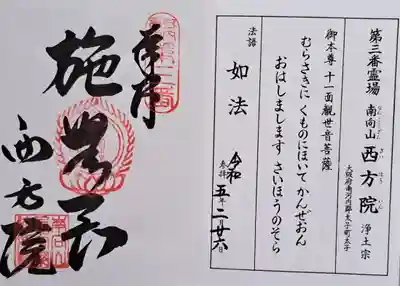 第三番霊場
南向山 西方院 浄土宗
さい ほう いん
大阪府南河内郡太子町太子
御本尊 十一面觀世音菩薩
むらさきに くものにほいて かんぜおん
おはしまします さいほうのそら
法語 如法
参拝 令和五年二月廿六日
奉拝
施無畏
西方院